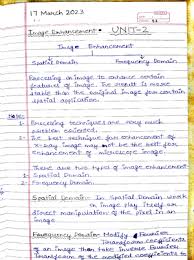 17 March 2023
Image Enhancement • UNIT-2
Image Enhancement
Spatial Domain Frequency Domain
Processing an image to enhance certain
features of image. The result is more
stable than the original image for certain
spatial application.
Note:
1- Processing techniques are very much
problem oriented.
2- The best technique for enhancement of
X-ray image may not be the best for
enhancement of microscopic image.
There are two types of image enhancement
1- Spatial Domain
2- Frequency Domain
Spatial Domain- In Spatial Domain work
on image play itself or
direct manipulation of the pixel in an
image.
Frequency Domain- Modify Fourier
Transform coefficients
of an image then take inverse Fourier
Transform of the modified coefficients